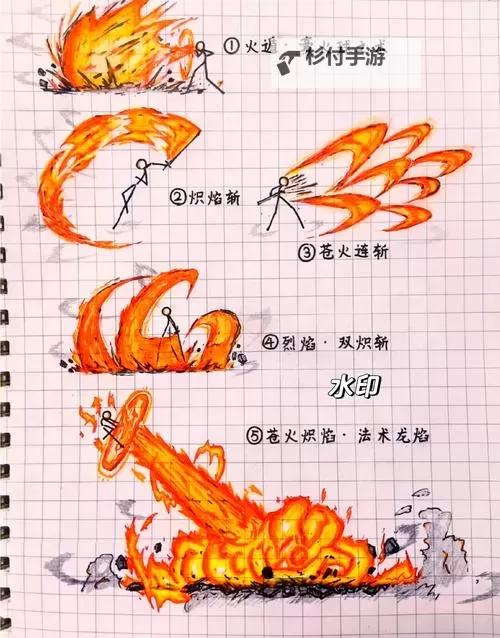 ①火遁·豪火球之术
杉付手游
②炽焰斩
③苍火连斩
④烈焰·双炽斩
水印
⑤苍火炽焰·法术龙焰